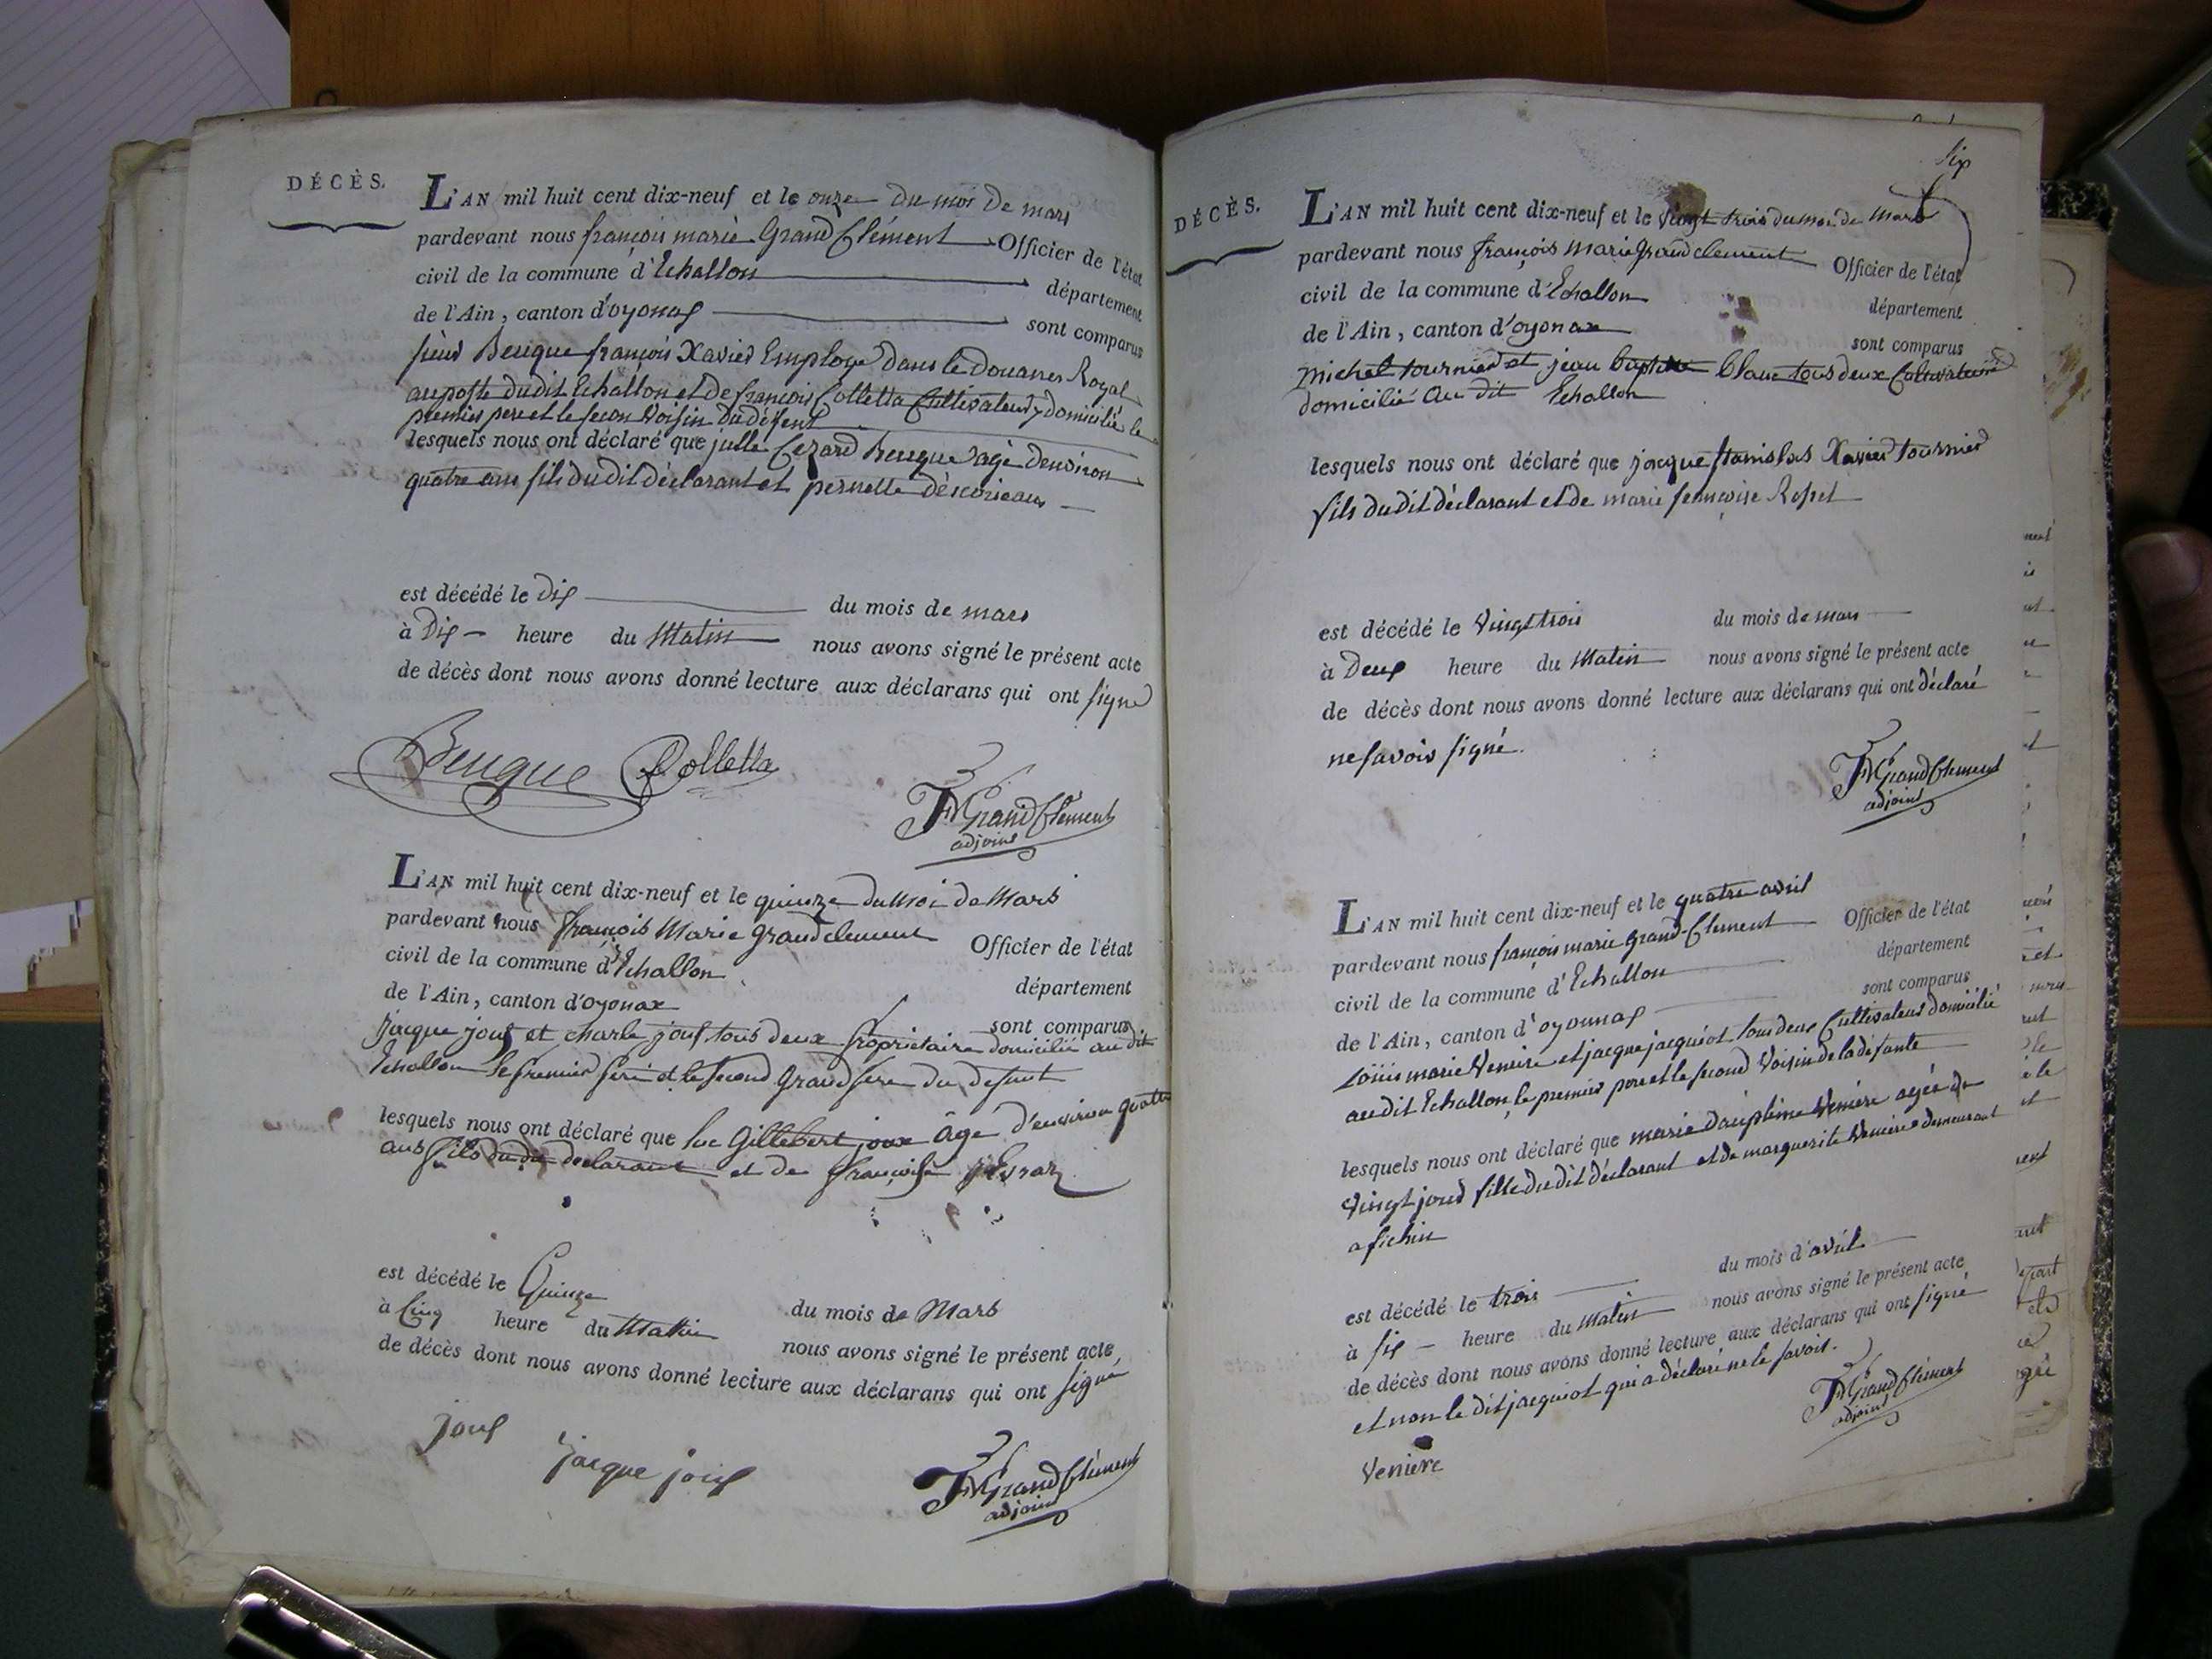 DÉCÈS.
L'AN mil huit cent dix-neuf et le onze du moi de mars
pardevant nous françois marie Grand Clément Officier de l'état
civil de la commune d'Echallon département
de l'Ain, canton d'oyonax sont comparus
sieur Beuque françois Xavier Employé dans le Douanes Royal
au poste dudit Echallon et de françois Colletta Cultivateur y domicilié le
premier pere et le secon Voisin du défunt
lesquels nous ont déclaré que julle Cezard Beuque agé denviron
quatre ans fils du dit déclarant et pernette
est décédé le dix du mois de mars
à Dix heure du Matin nous avons signé le présent acte
de décès dont nous avons donné lecture aux déclarans qui ont signé
Beuque Colletta
FM GrandClément
adjoint
L'AN mil huit cent dix-neuf et le quinze du moi de Mars
pardevant nous françois Marie grandclement Officier de l'état
civil de la commune d'Echallon département
de l'Ain, canton d'oyonax sont comparus
jacque joux et charle joux tous deux propriétaire domicilié au dit
Echallon le premier pere et le second Grand pere du defunt
lesquels nous ont déclaré que luc Gillebert joux âgé d'environ quatre
ans fils du dit declarant et de françoise
est décédé le Quinze du mois de Mars
à Cinq heure du Matin nous avons signé le présent acte
de décès dont nous avons donné lecture aux déclarans qui ont signé
joux
jacque joux
FM GrandClément
adjoint
six
DÉCÈS.
L'AN mil huit cent dix-neuf et le vingt trois du moi de Mars
pardevant nous françois Marie grand clement Officier de l'état
civil de la commune d'Echallon département
de l'Ain, canton d'oyonax sont comparus
Michel tournier et jean baptiste blanc tous deux Cultivateurs
domicilié au dit Echallon
lesquels nous ont déclaré que jacque stanislas Xavier tournier
fils du dit déclarant et de marie
est décédé le Vingt trois du mois de mars
à Deux heure du Matin nous avons signé le présent acte
de décès dont nous avons donné lecture aux déclarans qui ont déclaré
ne savoir signé.
FM GrandClément
adjoint
L'AN mil huit cent dix-neuf et le quatre avril
pardevant nous françois marie grand-Clement Officier de l'état
civil de la commune d'Echallon département
de l'Ain, canton d'oyonnax sont comparus
Louis marie Veniere et jacque jacquiot tous deux Cultivateur domicilié
au dit Echallon, le premier pere et le second Voisin de la défunte
lesquels nous ont déclaré que marie dauphine Veniére agée de
Vingt jour fille du dit déclarant et de marguerite Veniere demeurant
est décédé le trois du mois d'avril
à six heure du Matin nous avons signé le présent acte
de décès dont nous avons donné lecture aux déclarans qui ont signé
et non le dit jacquiot qui a déclaré ne le savoir.
FM GrandClément
adjoint
Veniere